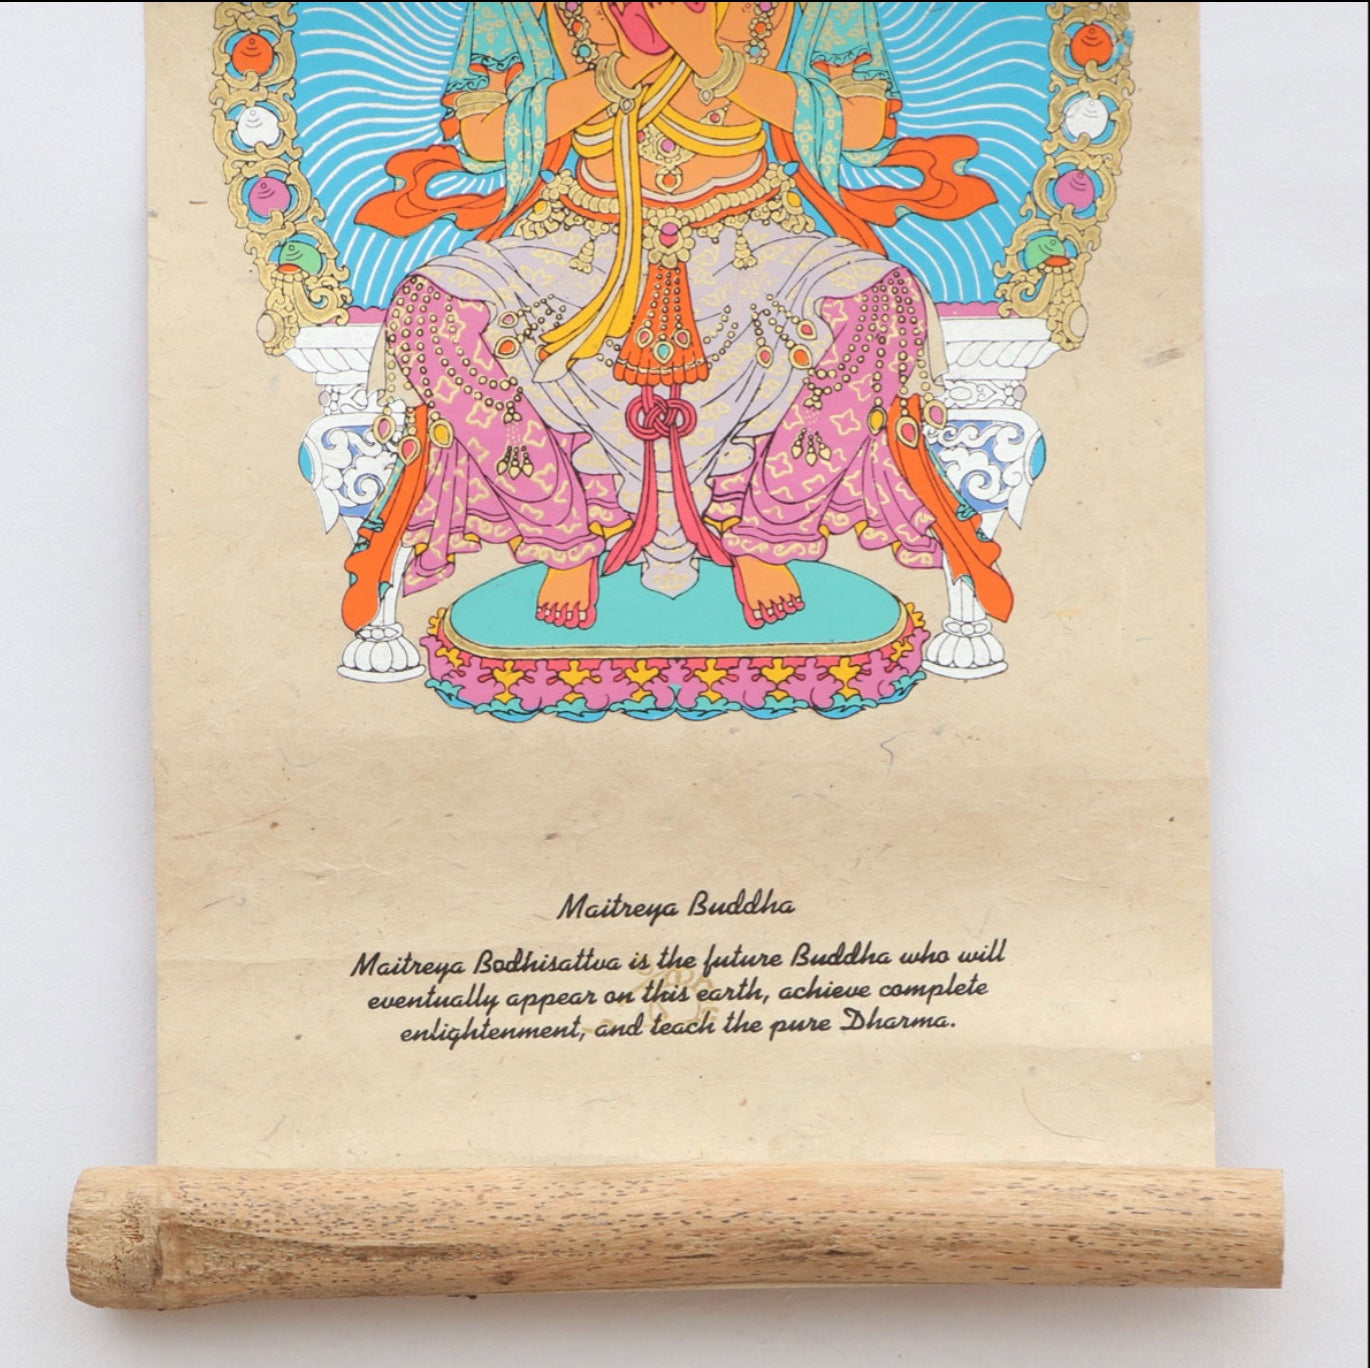 Maitreya Buddha
Maitreya Bodhisattva is the future Buddha who will
eventually appear on this earth, achieve complete
enlightenment, and teach the pure Dharma.